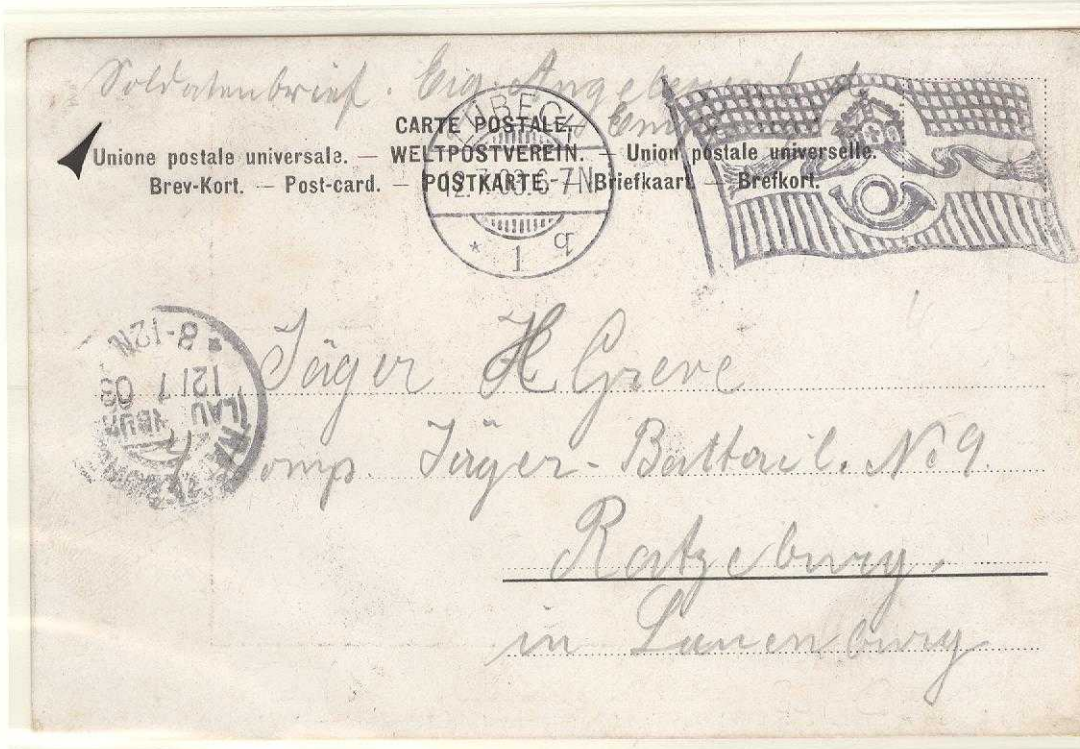 Soldatenbrief. Eig. Angelegenheit d.
Empf.
CARTE POSTALE.
Unione postale universale. — WELTPOSTVEREIN. — Union postale universelle.
Brev-Kort. — Post-card. — POSTKARTE. — Briefkaart. — Brefkort.
LÜBECK
12.7.03.6-7N
* 1 q
8-12N
12/7 03
LAU
Jäger H Greve
4 Comp. Jäger-Battail. No 9.
Ratzeburg.
in Lauenburg